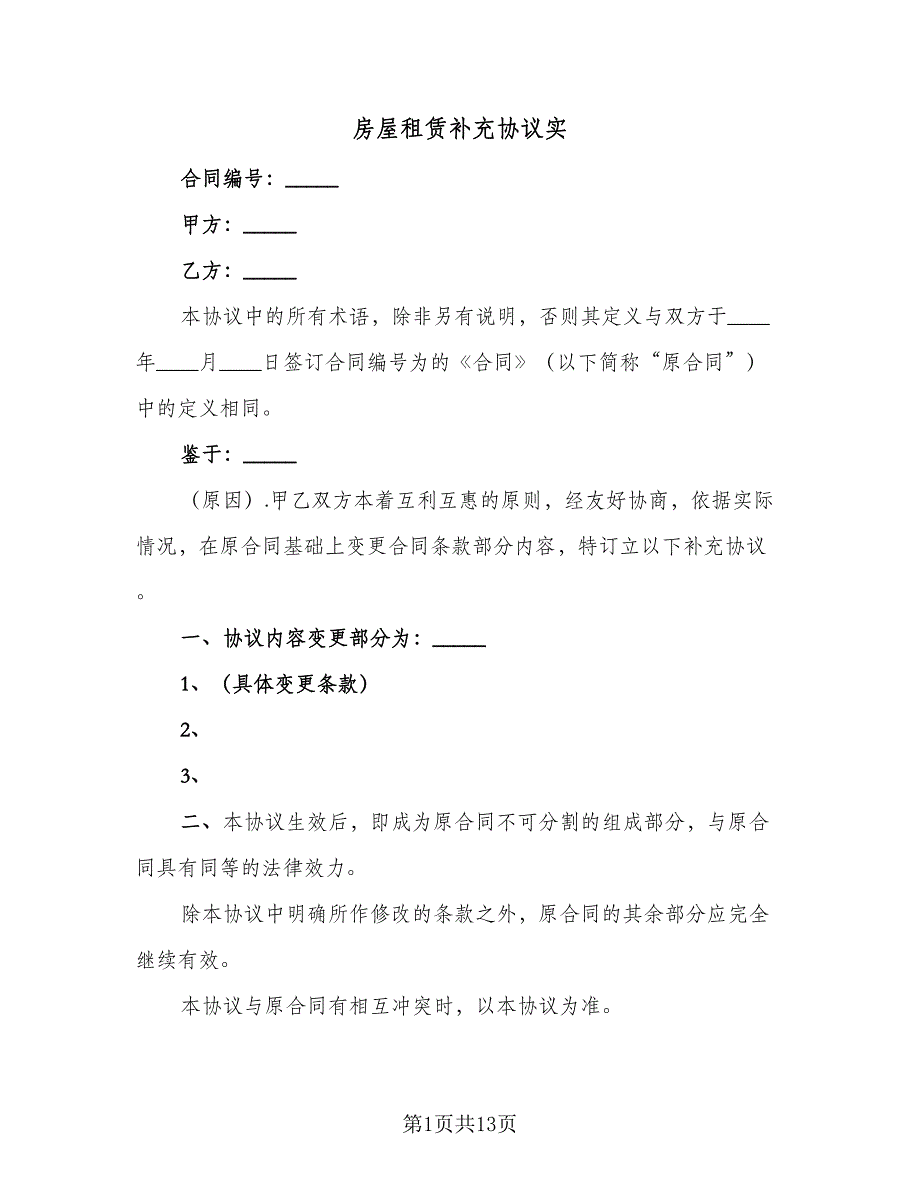 房屋租赁补充协议实
合同编号：_____
甲方：_____
乙方：_____
本协议中的所有术语，除非另有说明，否则其定义与双方于____
年____月____日签订合同编号为的《合同》（以下简称“原合同”）
中的定义相同。
鉴于：_____
（原因）.甲乙双方本着互利互惠的原则，经友好协商，依据实际
情况，在原合同基础上变更合同条款部分内容，特订立以下补充协议
。
一、协议内容变更部分为：_____
1、（具体变更条款）
2、
3、
二、本协议生效后，即成为原合同不可分割的组成部分，与原合
同具有同等的法律效力。
除本协议中明确所作修改的条款之外，原合同的其余部分应完全
继续有效。
本协议与原合同有相互冲突时，以本协议为准。
第1页共13页